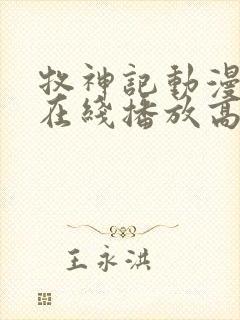 牧神記動漫
在綫播放高
王永洪